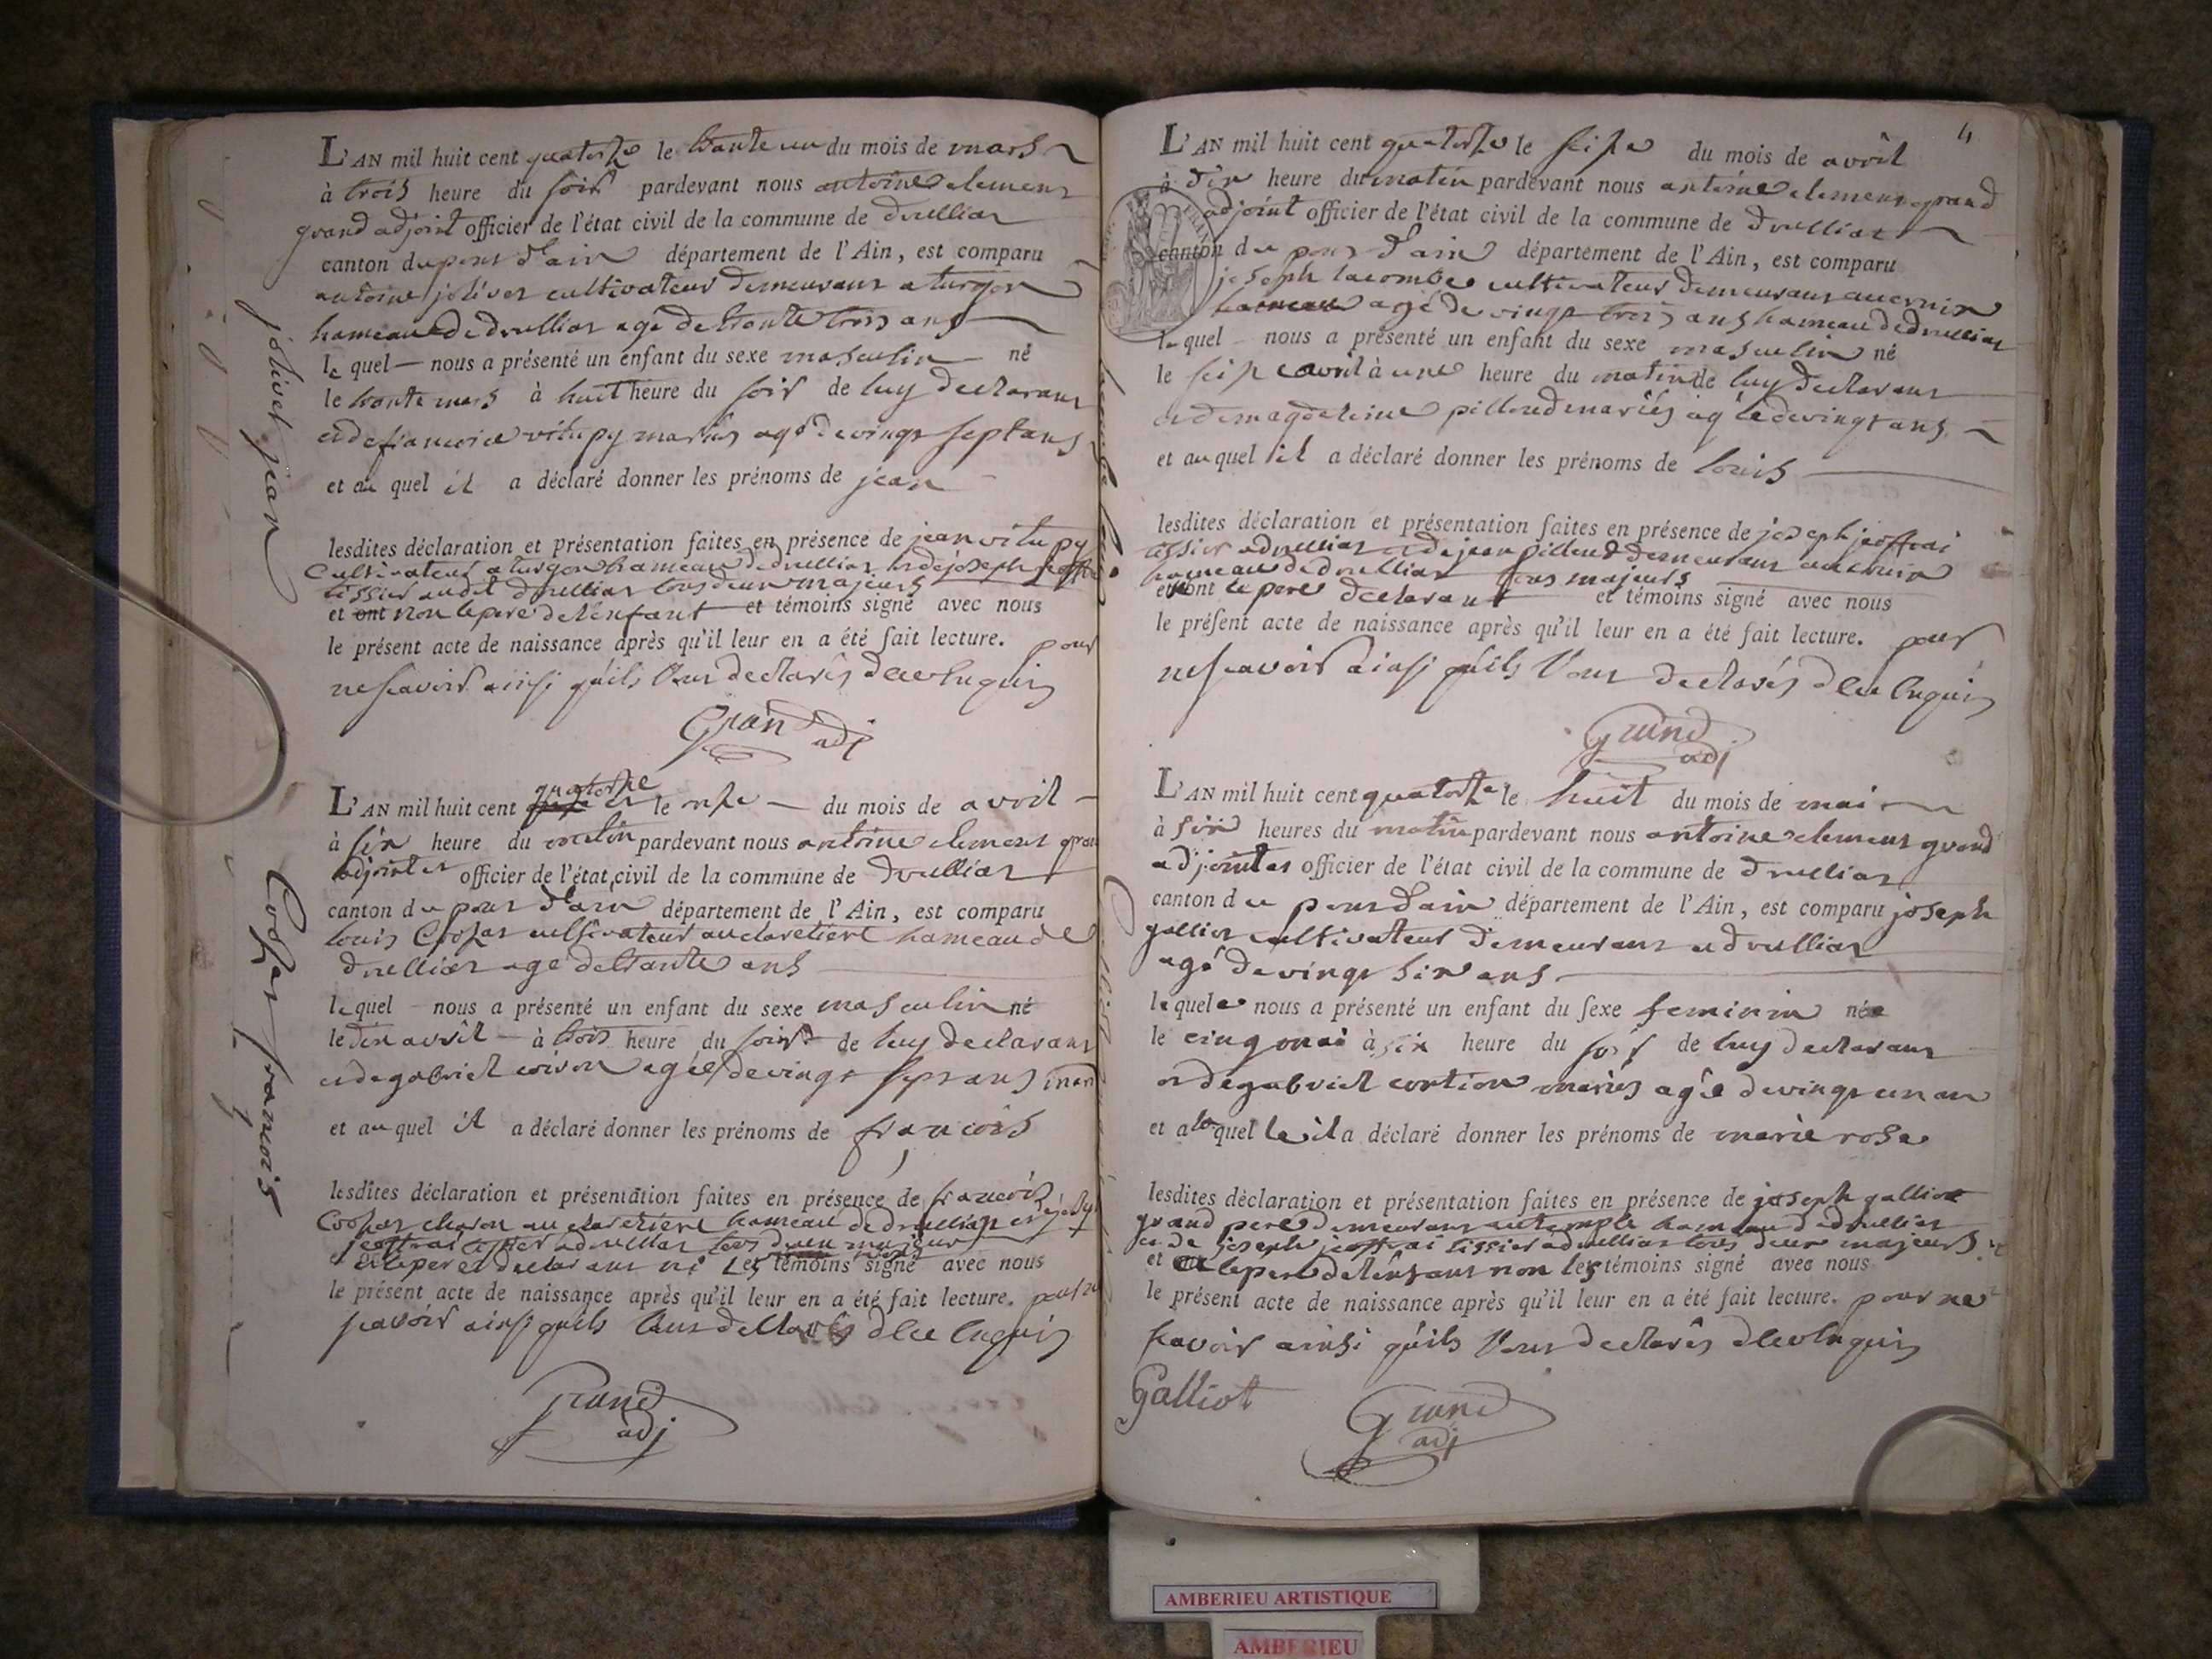 jolivet jean
L'AN mil huit cent quatorze le trante un du mois de mars
à trois heure du soir pardevant nous antoine clemens
grand adjoint officier de l'état civil de la commune de druillias
canton du pons d'ain département de l'Ain, est comparu
antoine jolivet cultivateur demeurans a turgon
hameau de druillias agé de trante trois ans
le quel nous a présenté un enfant du sexe masculin né
le trante mars à huit heure du soir de luy declarans
et de francoise vitupy mariés agé de vingt sept ans
et au quel il a déclaré donner les prénoms de jean
lesdites déclaration et présentation faites en présence de jean vitupy
cultivateur a turgon hameau de druillias et de joseph
tissier audit druillias tous deux majeurs
et ont non le pere de l'enfant et témoins signé avec nous
le présent acte de naissance après qu'il leur en a été fait lecture. pour
ne scavoir ainsi quils l'ont declarés de ce enquis
Grand adj
Cozar francois
L'AN mil huit cent quatorze le onze du mois de avril
à six heure du matin pardevant nous antoine clemens gran
adjoint et officier de l'état civil de la commune de druillias
canton du pons d'ain département de l'Ain, est comparu
louis cultivateur au claretiere hameau de
druillias agé de trante ans
le quel nous a présenté un enfant du sexe masculin né
le dix avril à trois heure du soir de luy declarans
et de gabriel agée de vingt sept ans
et au quel il a déclaré donner les prénoms de francois
lesdites déclaration et présentation faites en présence de francois
charon au claretiere hameau de druillias et
tissier a druillias tous deux majeur
et le pere declarans ni les témoins signé avec nous
le présent acte de naissance après qu'il leur en a été fait lecture. pour ne
scavoir ainsi quils l'ont declarés de ce enquis
Grand adj
4
L'AN mil huit cent quatorze le seize du mois de avril
à dix heure du matin pardevant nous antoine clemens grand
adjoint officier de l'état civil de la commune de druillias
canton du pons d'ain département de l'Ain, est comparu
joseph lacombe cultivateur demeurans
hameau agé de vingt trois ans hameau de druillias
le quel nous a présenté un enfant du sexe masculin né
le seize avril à une heure du matin de luy declarans
et de magdeleine pilloud mariés agée de vingt ans
et au quel il a déclaré donner les prénoms de louis
lesdites déclaration et présentation faites en présence de joseph jeoffrai
tissier a druillias et de jean pilloud demeurans
hameau de druillias tous majeurs
et ont le pere declarant et témoins signé avec nous
le présent acte de naissance après qu'il leur en a été fait lecture. pour
ne scavoir ainsi quils l'ont declarés de ce enquis
Grand adj
L'AN mil huit cent quatorze le huit du mois de mai
à six heures du matin pardevant nous antoine clemens grand
adjoint et officier de l'état civil de la commune de druillias
canton du pons d'ain département de l'Ain, est comparu joseph
galliot cultivateur demeurans a druillias
agé de vingt six ans
le quel nous a présenté un enfant du sexe feminin née
le cinq mai à six heure du soir de luy declarans
et de gabriel mariés agée de vingt un an
et a la quelle il a déclaré donner les prénoms de marie rose
lesdites déclaration et présentation faites en présence de joseph galliot
grand pere demeurans au temple hameau de druillias
et de joseph jeoffrai tissier a druillias tous deux majeurs
et le pere de l'enfant non les témoins signé avec nous
le présent acte de naissance après qu'il leur en a été fait lecture. pour ne
scavoir ainsi quils l'ont declarés de ce enquis
Galliot
Grand adj
AMBERIEU ARTISTIQUE
AMBERIEU